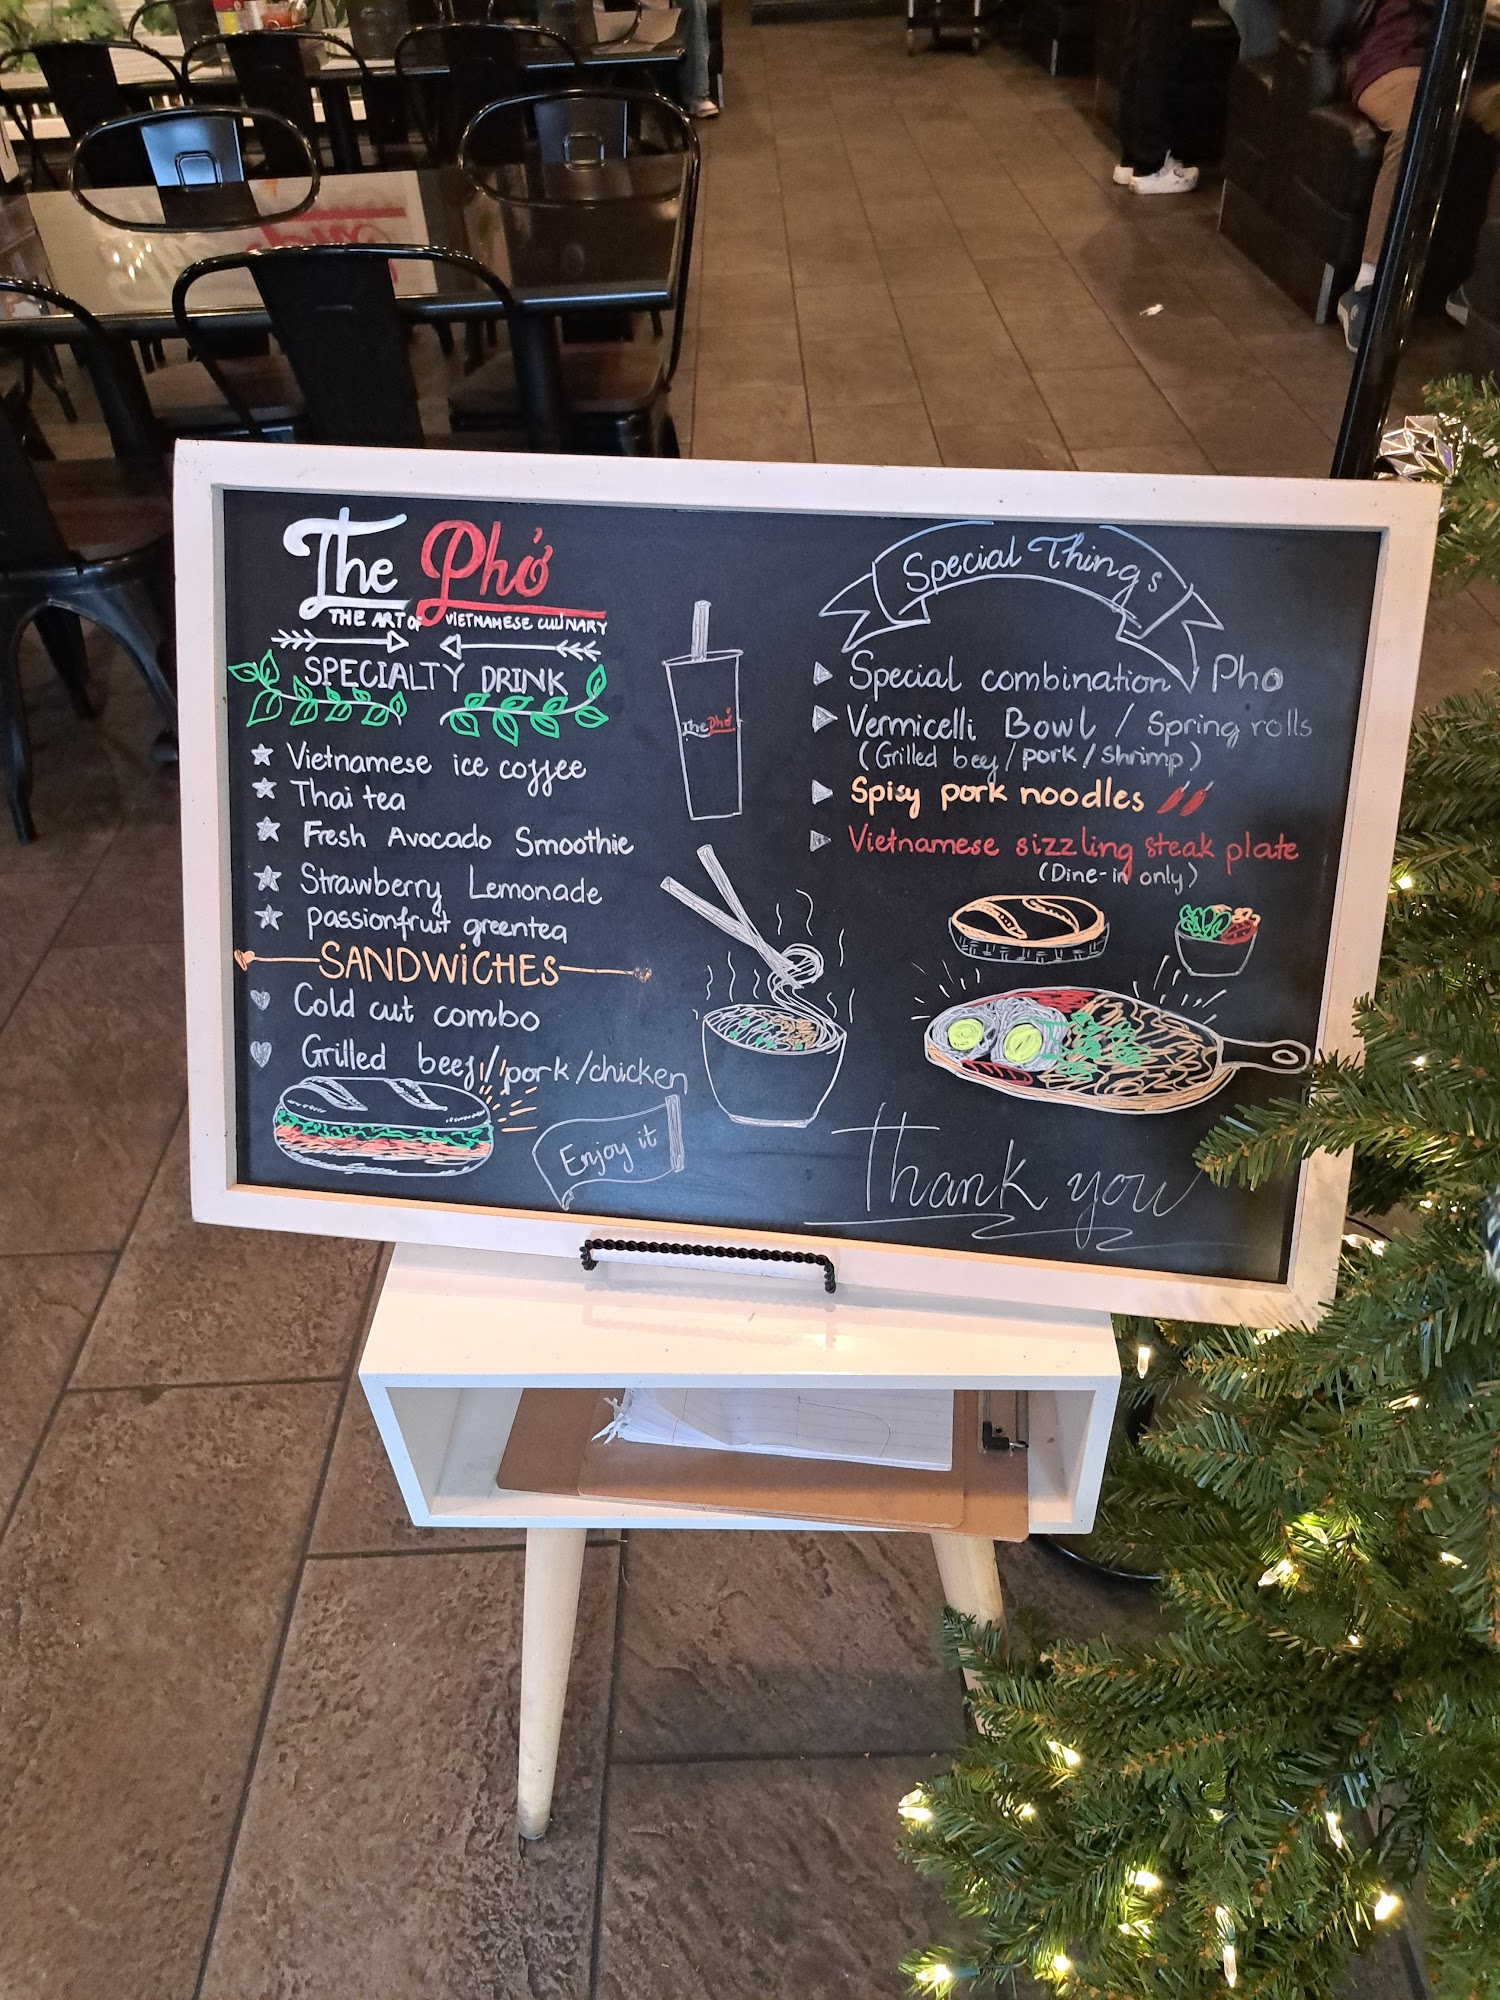 The Phở
THE ART OF VIETNAMESE CULINARY
SPECIALTY DRINK
Vietnamese ice coffee
Thai tea
Fresh Avocado Smoothie
Strawberry Lemonade
passionfruit greentea
SANDWiCHES
Cold cut combo
Grilled beef/pork/chicken
Enjoy it
The Phở
Special Things
Special combination Pho
Vermicelli Bowl / Spring rolls
(Grilled beef/pork/Shrimp)
Spisy pork noodles
Vietnamese sizzling steak plate
(Dine-in only)
Thank you